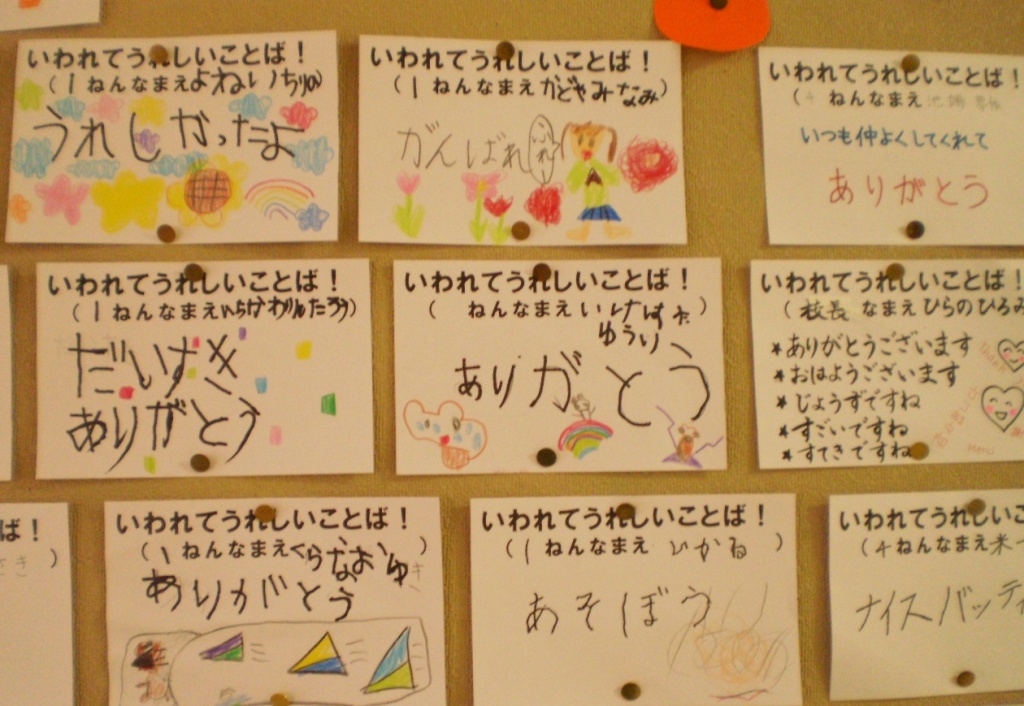 いわれてうれしいことば！
(1ねんなまえよねいちりの)
うれしかったよ
いわれてうれしいことば！
(1ねんなまえかどやみなみ)
がんばれ
いわれてうれしいことば！
(4ねんなまえ
いつも仲よくしてくれて
ありがとう
いわれてうれしいことば！
(1ねんなまえ
だいすき
ありがとう
いわれてうれしいことば！
( ねんなまえいけはた
ゆうり )
ありがとう
いわれてうれしいことば！
(校長 なまえひらのひろみ
*ありがとうございます
*おはようございます
*じょうずですね
*すごいですね
*すてきですね
ば！
さき)
いわれてうれしいことば！
(1ねんなまえくらなおゆき)
ありがとう
いわれてうれしいことば！
(1ねんなまえ ひかる )
あそぼう
いわれてうれしいこと
(4ねんなまえ米
ナイスバッティ